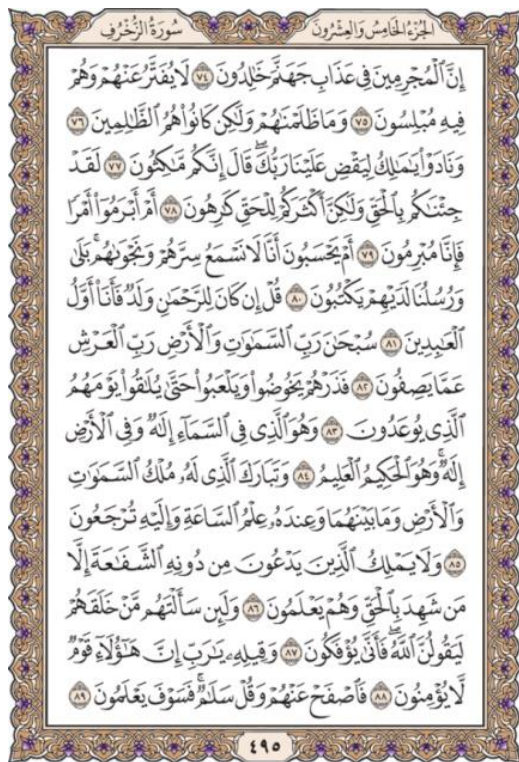 الجُزْءُ الخَامِسُ وَالعِشْرُونَ
سُورَةُ الزُّخْرُفِ
إِنَّ ٱلْمُجْرِمِينَ فِى عَذَابِ جَهَنَّمَ خَٰلِدُونَ ٧٤ لَا يُفَتَّرُ عَنْهُمْ وَهُمْ
فِيهِ مُبْلِسُونَ ٧٥ وَمَا ظَلَمْنَٰهُمْ وَلَٰكِن كَانُوا۟ هُمُ ٱلظَّٰلِمِينَ ٧٦
وَنَادَوْا۟ يَٰمَٰلِكُ لِيَقْضِ عَلَيْنَا رَبُّكَ ۖ قَالَ إِنَّكُم مَّٰكِثُونَ ٧٧ لَقَدْ
جِئْنَٰكُم بِٱلْحَقِّ وَلَٰكِنَّ أَكْثَرَكُمْ لِلْحَقِّ كَٰرِهُونَ ٧٨ أَمْ أَبْرَمُوٓا۟ أَمْرًا
فَإِنَّا مُبْرِمُونَ ٧٩ أَمْ يَحْسَبُونَ أَنَّا لَا نَسْمَعُ سِرَّهُمْ وَنَجْوَىٰهُم ۚ بَلَىٰ
وَرُسُلُنَا لَدَيْهِمْ يَكْتُبُونَ ٨٠ قُلْ إِن كَانَ لِلرَّحْمَٰنِ وَلَدٌ فَأَنَا۠ أَوَّلُ
ٱلْعَٰبِدِينَ ٨١ سُبْحَٰنَ رَبِّ ٱلسَّمَٰوَٰتِ وَٱلْأَرْضِ رَبِّ ٱلْعَرْشِ
عَمَّا يَصِفُونَ ٨٢ فَذَرْهُمْ يَخُوضُوا۟ وَيَلْعَبُوا۟ حَتَّىٰ يُلَٰقُوا۟ يَوْمَهُمُ
ٱلَّذِى يُوعَدُونَ ٨٣ وَهُوَ ٱلَّذِى فِى ٱلسَّمَآءِ إِلَٰهٌ وَفِى ٱلْأَرْضِ
إِلَٰهٌ ۚ وَهُوَ ٱلْحَكِيمُ ٱلْعَلِيمُ ٨٤ وَتَبَارَكَ ٱلَّذِى لَهُۥ مُلْكُ ٱلسَّمَٰوَٰتِ
وَٱلْأَرْضِ وَمَا بَيْنَهُمَا وَعِندَهُۥ عِلْمُ ٱلسَّاعَةِ وَإِلَيْهِ تُرْجَعُونَ
٨٥ وَلَا يَمْلِكُ ٱلَّذِينَ يَدْعُونَ مِن دُونِهِ ٱلشَّفَٰعَةَ إِلَّا
مَن شَهِدَ بِٱلْحَقِّ وَهُمْ يَعْلَمُونَ ٨٦ وَلَئِن سَأَلْتَهُم مَّنْ خَلَقَهُمْ
لَيَقُولُنَّ ٱللَّهُ ۖ فَأَنَّىٰ يُؤْفَكُونَ ٨٧ وَقِيلِهِۦ يَٰرَبِّ إِنَّ هَٰٓؤُلَآءِ قَوْمٌ
لَّا يُؤْمِنُونَ ٨٨ فَٱصْفَحْ عَنْهُمْ وَقُلْ سَلَٰمٌ ۚ فَسَوْفَ يَعْلَمُونَ ٨٩
٤٩٥